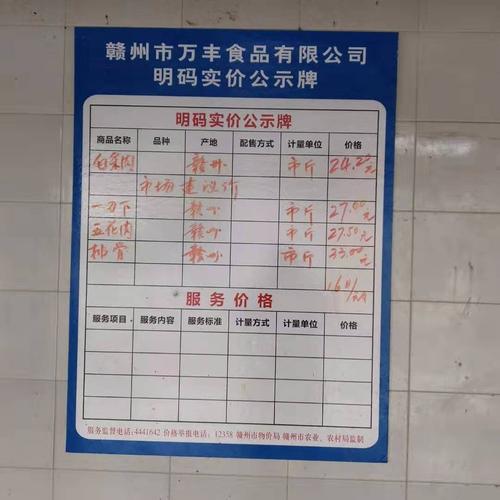 赣州市万丰食品有限公司
明码实价公示牌
明码实价公示牌
商品名称 品种 产地 配售方式 计量单位 价格
白条肉 赣州 市斤 24.20元
市场建议价
一刀下 赣州 市斤 27.00元
五花肉 赣州 市斤 27.50元
排骨 赣州 市斤 33.00元
服务价格
服务项目 服务内容 服务标准 计量方式 计量单位 价格
服务监督电话:4441642 价格举报电话:12358 赣州市物价局 赣州市农业、农村局监制